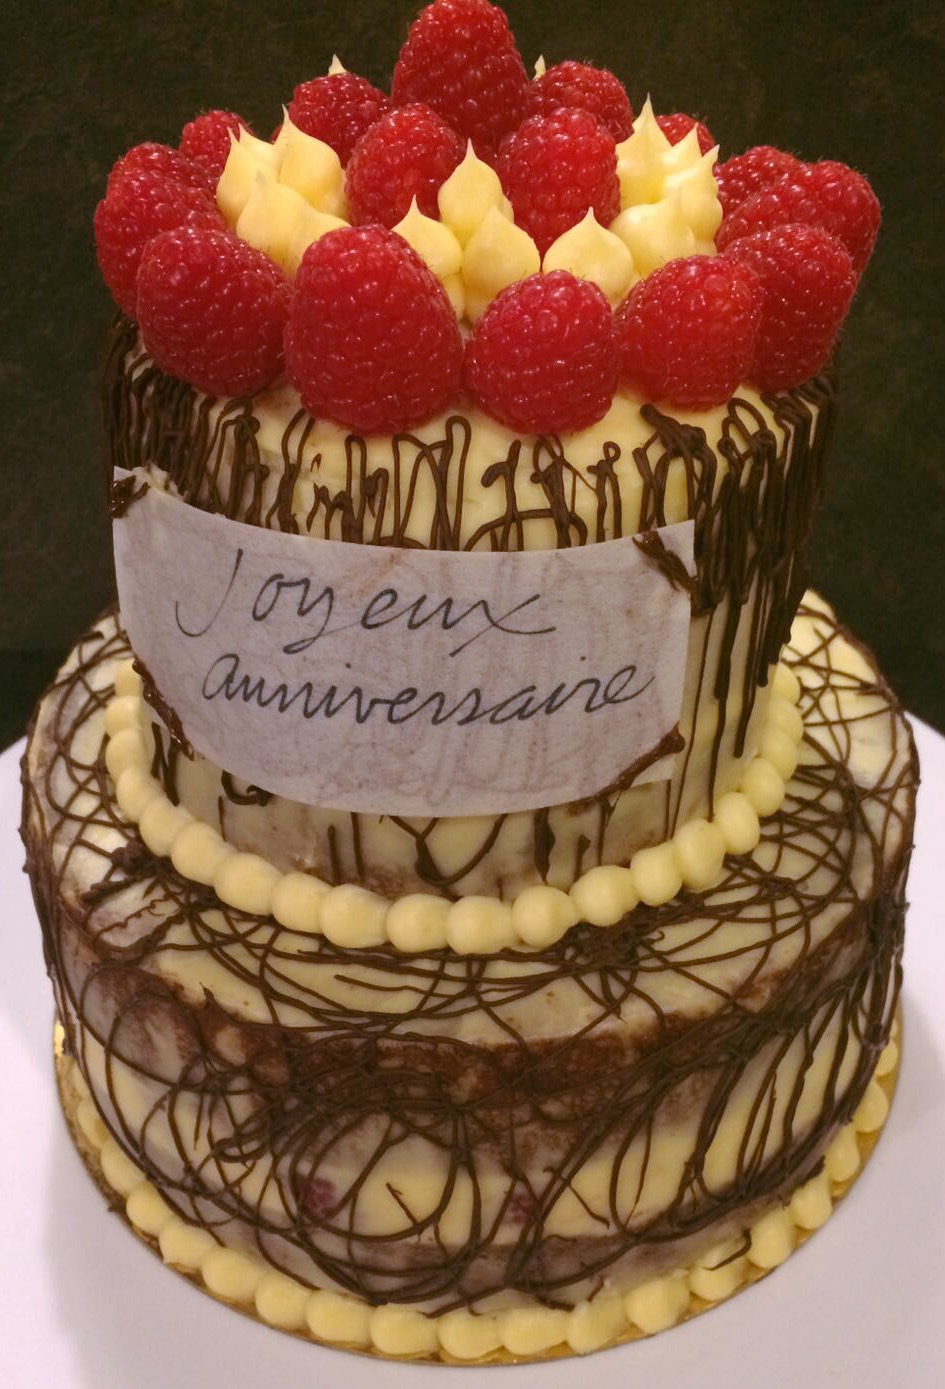 Joyeux
anniversaire